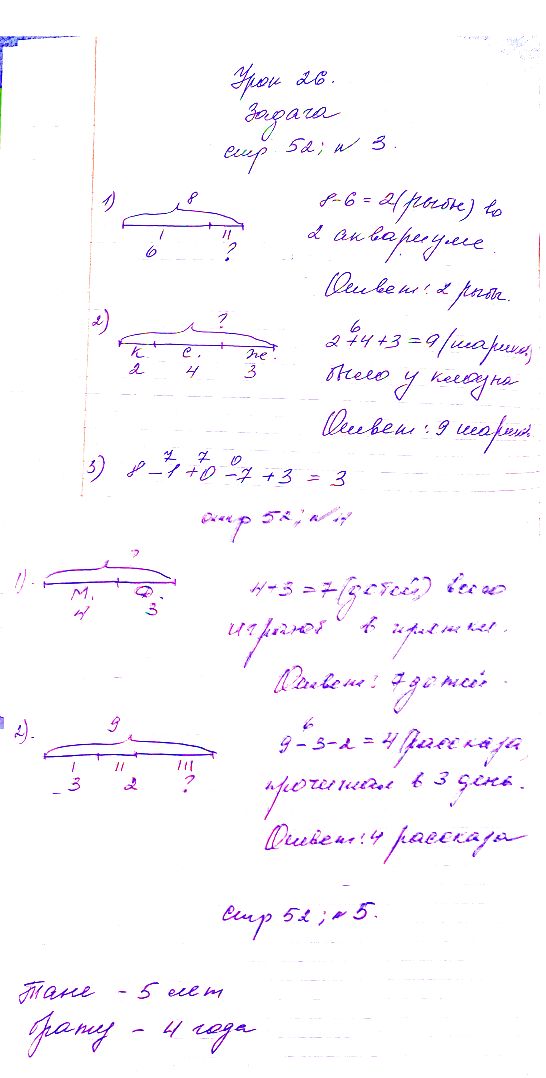 Урок 26.
Задача
стр 52; № 3.
1) 8
I II
6 ?
8-6 = 2 (рыбы) во
2 аквариуме
Ответ: 2 рыбы.
2) ?
К. С. Ж.
2 4 3
6
2+4+3 = 9 (шариков)
было у клоуна
Ответ: 9 шариков
7 7 0
3) 8-1+0-7+3 = 3
стр 52; № 4
1). ?
М. Д.
4 3
4+3 = 7 (детей) всего
играют в прятки.
Ответ: 7 детей.
2). 9
I II III
3 2 ?
6
9-3-2 = 4 (рассказа
прочитал в 3 день.
Ответ: 4 рассказа
стр 52; № 5.
Тане - 5 лет
брату - 4 года